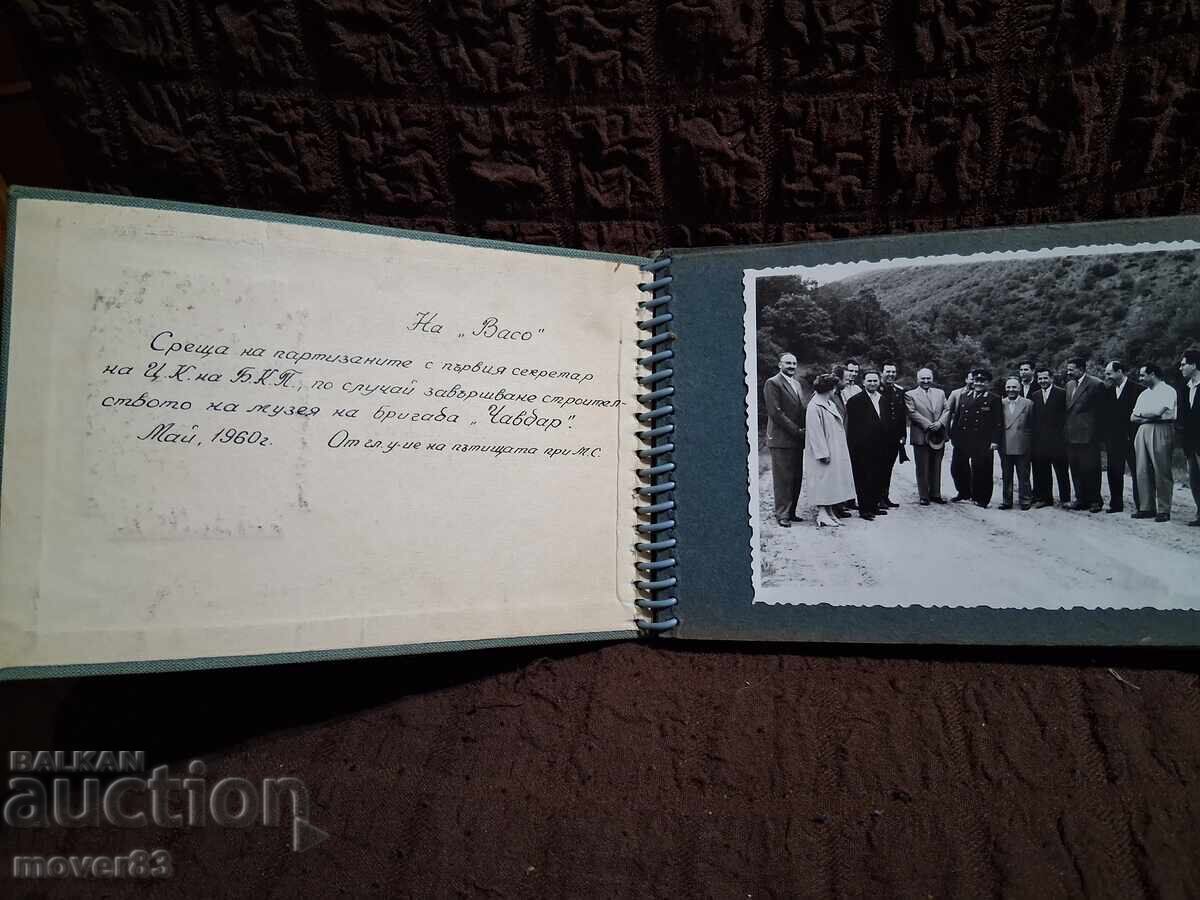 На „Васо"
Среща на партизаните с първия секретар
на Ц.К. на Б.К.П., по случай завършване строител-
ството на музея на бригада „Чавдар".
Май, 1960г. От гл. у-ие на пътищата при М.С.
BALKAN
auction
mover83